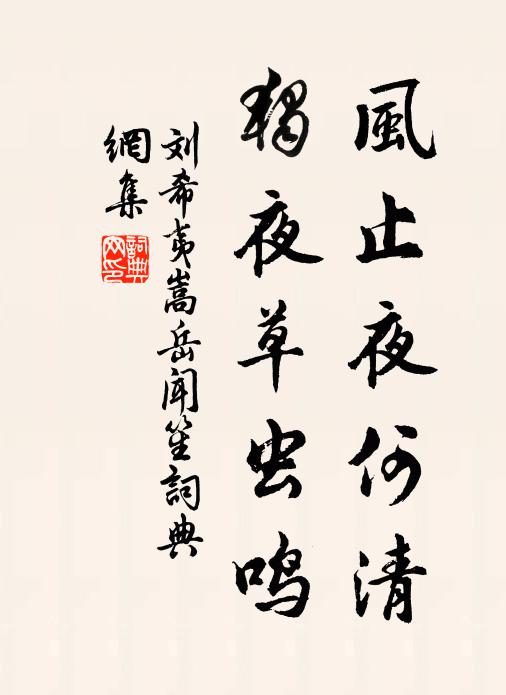 風止夜何清
獨夜草虫鳴
刘希夷嵩岳闻笙詞典
網集
詞典
网印